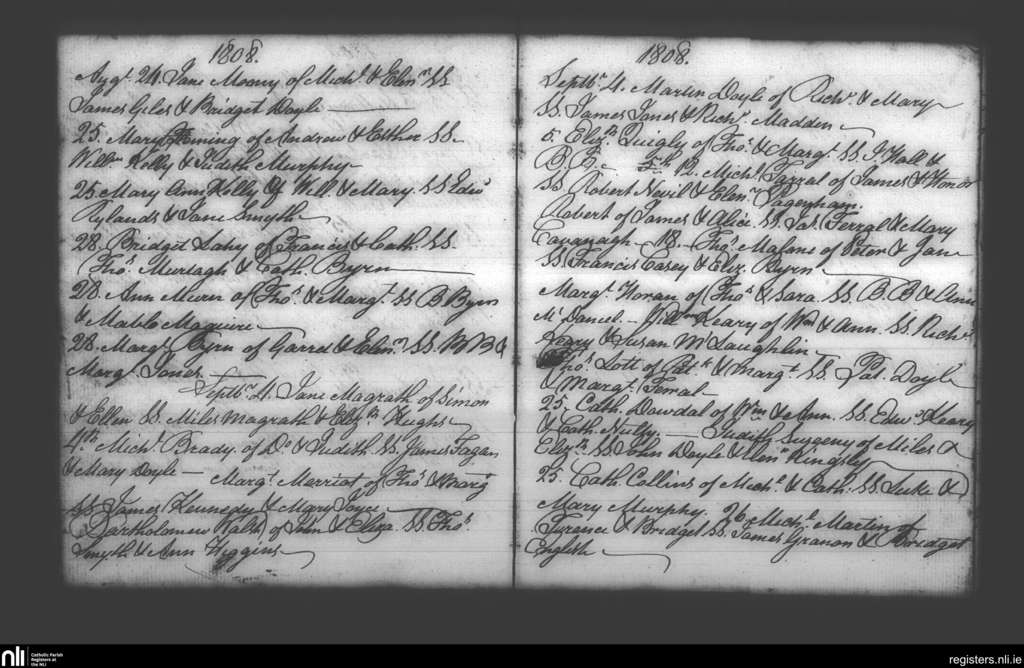 1808.
Augt. 24. Jane Moony of Michl. & Elenr. SS
James Giles & Bridget Doyle
25. Mary Fleming of Andrew & Esther SS.
Willm. Kelly & Judith Murphy
25 Mary Ann Kelly of Will. & Mary. SS Edwd.
Rylands & Jane Smyth
28. Bridget Lahy of Francis & Cath. SS.
Thos. Murtagh & Cath. Byrn
28. Ann of Thos. & Margt. SS B Byrn
& Mable Maguire
28. Margt. Byrn of Garred & Elenr. SS. B B &
Margt. Jones
Septbr. 4. Jane Magrath of Simon
& Ellen SS. Miles Magrath & Elizth. Hughs
4th. Michl. Brady of Do. & Judith. SS. James Fagan
& Mary Doyle — Margt. Merriot of Thos. & Margt.
SS James Kennedy & Mary Joyce
Bartholomew of John & Eliza. SS Thos.
Smyth & Ann Higgins
1808.
Septbr. 4. Martin Doyle of Richd. & Mary
SS. James Jones & Richd. Madden
5. Elizth. Quigly of Thos. & Margt. SS. J. Hall &
B. B. 12. Michl. Farral of James & Honor
SS. Robert Nevil & Elenr.
Robert of James & Alice. SS. Jas. Ferral & Mary
Cavanagh — 18 — Thos. Malone of Peter & Jane
SS. Francis Casey & Eliz. Byrn
Margt. Horan of Thos. & Sara. SS. B. B & Ann
Mc. Daniel — Willm. Keary of Wm. & Ann. SS. Richd.
& Susan Mc. Laughlin
Thos. Lott of Patk. & Margt. SS. Pat. Doyle
& Margt.
25. Cath. Dowdal of Wm. & Ann. SS. Edwd. Keary
& Cath. Nulty — Judith of Miles &
Elizth. SS John Doyle & Elenr. Kingsly
25. Cath. Collins of Michl. & Cath. SS. Luke &
Mary Murphy. 26 Michl. Martin of
Terence & Bridget SS. James & Bridget
English
nli
Catholic Parish
Registers at
the NLI
registers.nli.ie